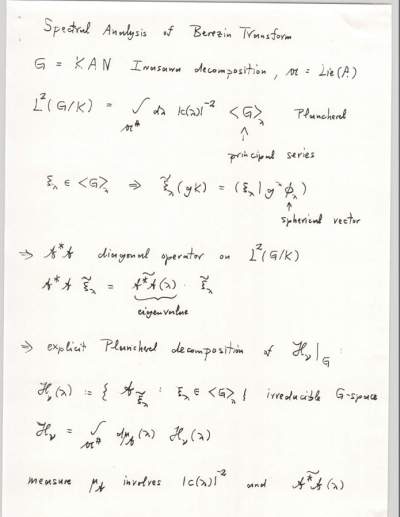 Spectral Analysis of Berezin Transform
G = KAN Iwasawa decomposition, 𝔞 = Lie(A)
L²(G/K) = ∫_{𝔞^#} dλ |c(λ)|⁻² <G>_λ Plancherel
↑
principal series
ξ_λ ∈ <G>_λ ⇒ ξ̃_λ(gK) = (ξ_λ | g^λ ϕ_λ)
↑
spherical vector
⇒ A*A diagonal operator on L²(G/K)
A*A ξ̃_λ = A*A~(λ) · ξ̃_λ
eigenvalue
⇒ explicit Plancherel decomposition of ℋ_ν|_G :
ℋ_ν(λ) := { A ξ̃_λ : ξ_λ ∈ <G>_λ } irreducible G-space
ℋ_ν = ∫_{𝔞^#} dμ_A(λ) ℋ_ν(λ)
measure μ_A involves |c(λ)|⁻² and A*A~(λ)